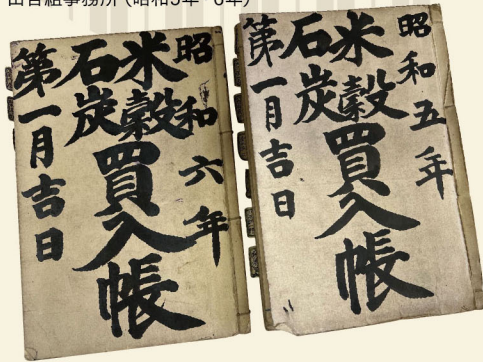 組事務所（昭和5年・6年）
昭和五年
米穀
石炭
買入帳
第一月吉日
昭和六年
米穀
石炭
買入帳
第一月吉日